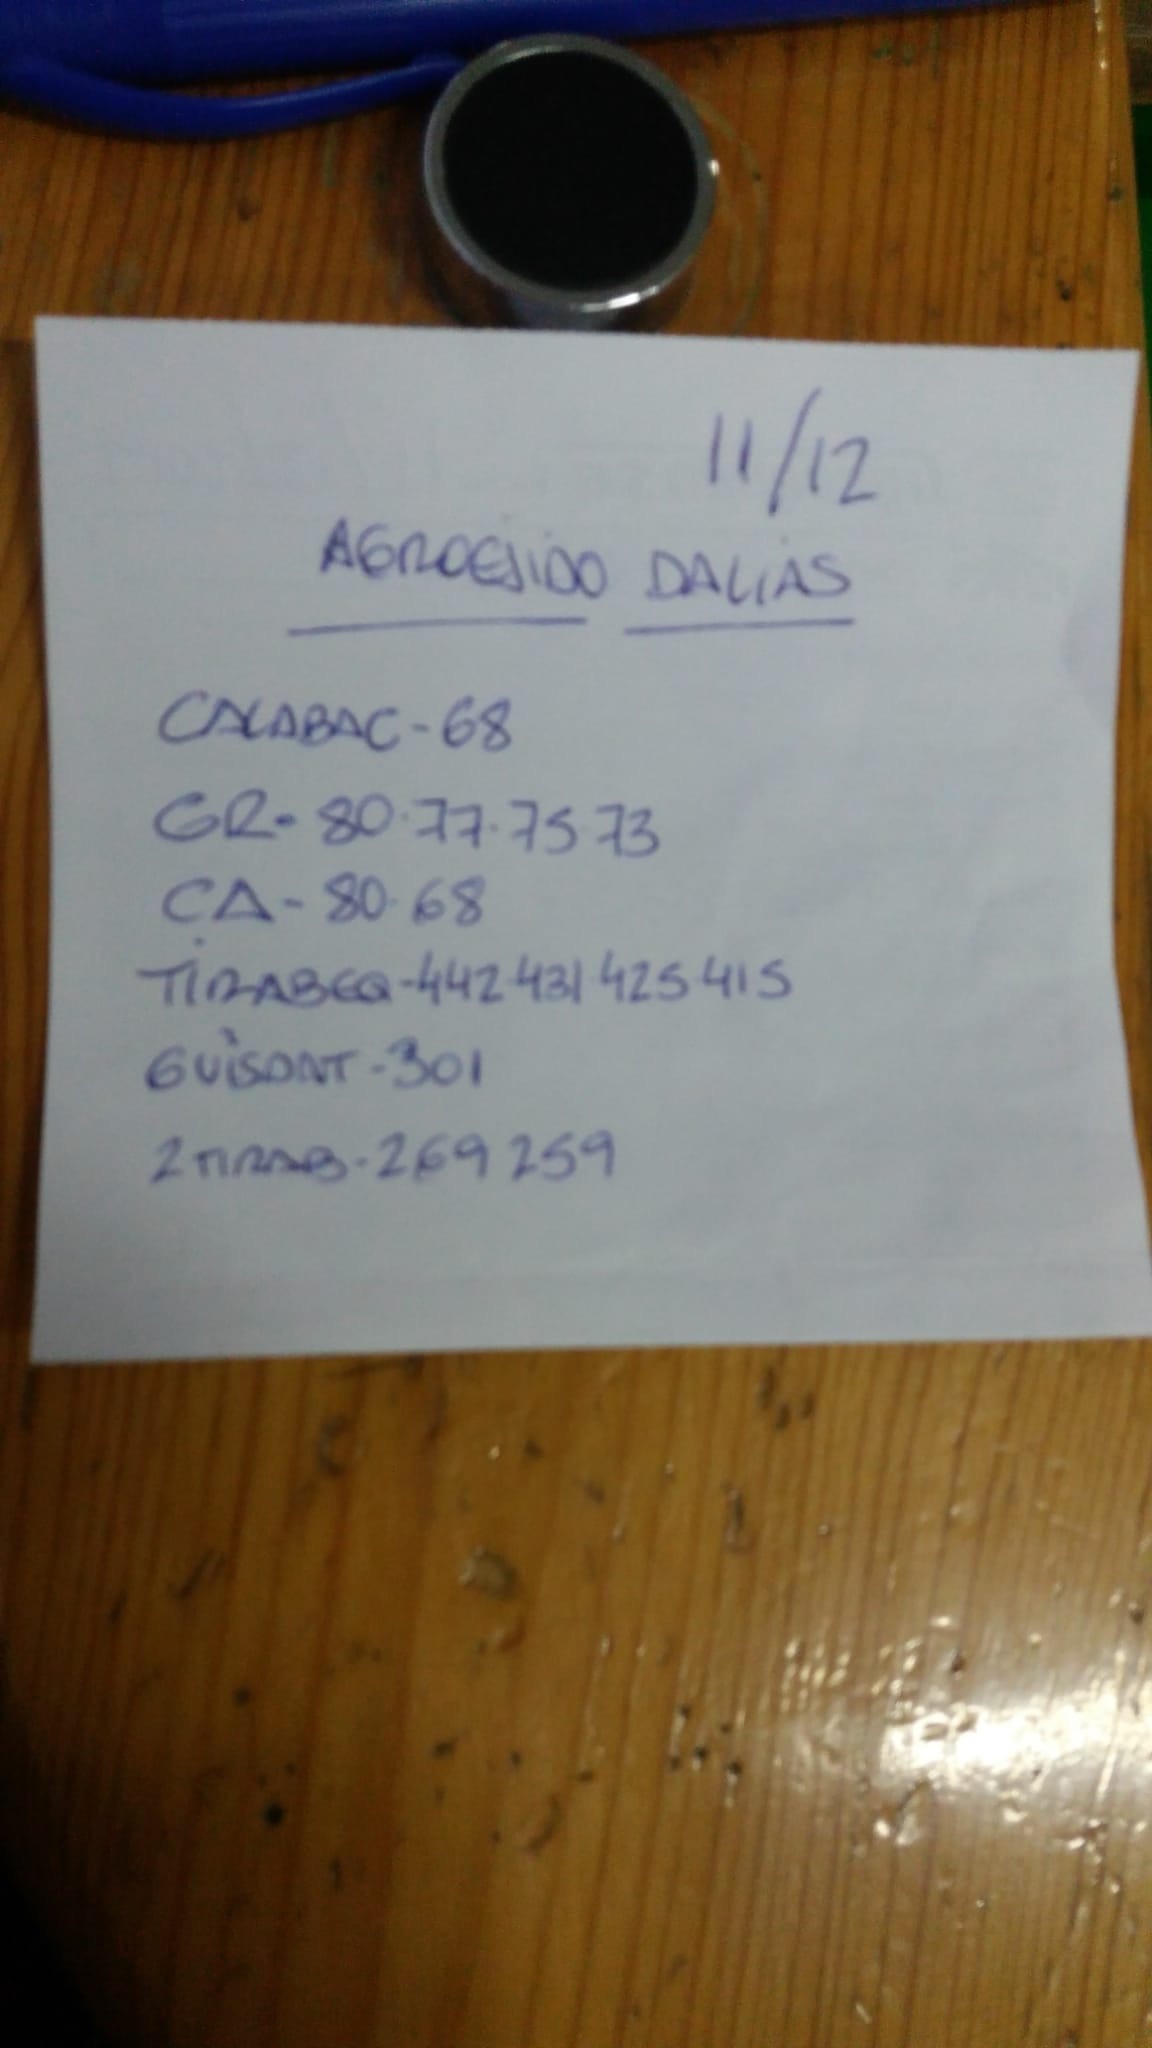 11/12
AGROEJIDO DALIAS
CALABAC - 68
GR - 80.77.75 73
CA - 80.68
TIRABEQ - 442 431 425 415
GUISANT - 301
2 TIRAB - 269 259